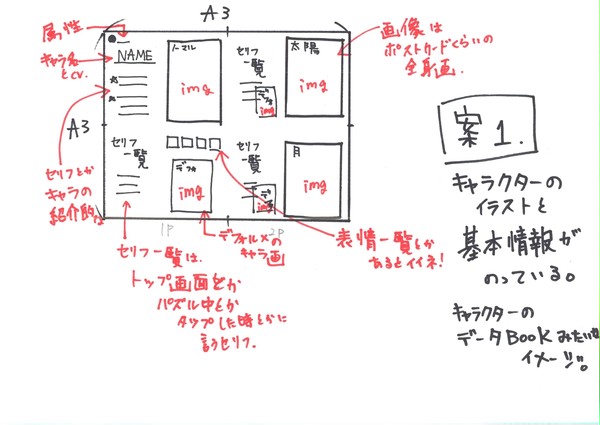 A3
属性
キャラ名
とCV.
NAME
ノーマル
img
セリフ
一覧
デフォ
img
太陽
img
画像は
ポストカードくらいの
全身画.
A3
セリフとか
キャラの
紹介的な
セリフ
一覧
デフォ
img
セリフ
一覧
デフォ
img
月
img
1P
2P
セリフ一覧は、
トップ画面とか
パズル中とか
タップした時とかに
言うセリフ.
デフォルメの
キャラ画
表情一覧とか
あるとイイネ!
案1.
キャラクターの
イラストと
基本情報が
のっている。
キャラクターの
データBOOKみたいな
イメージ。